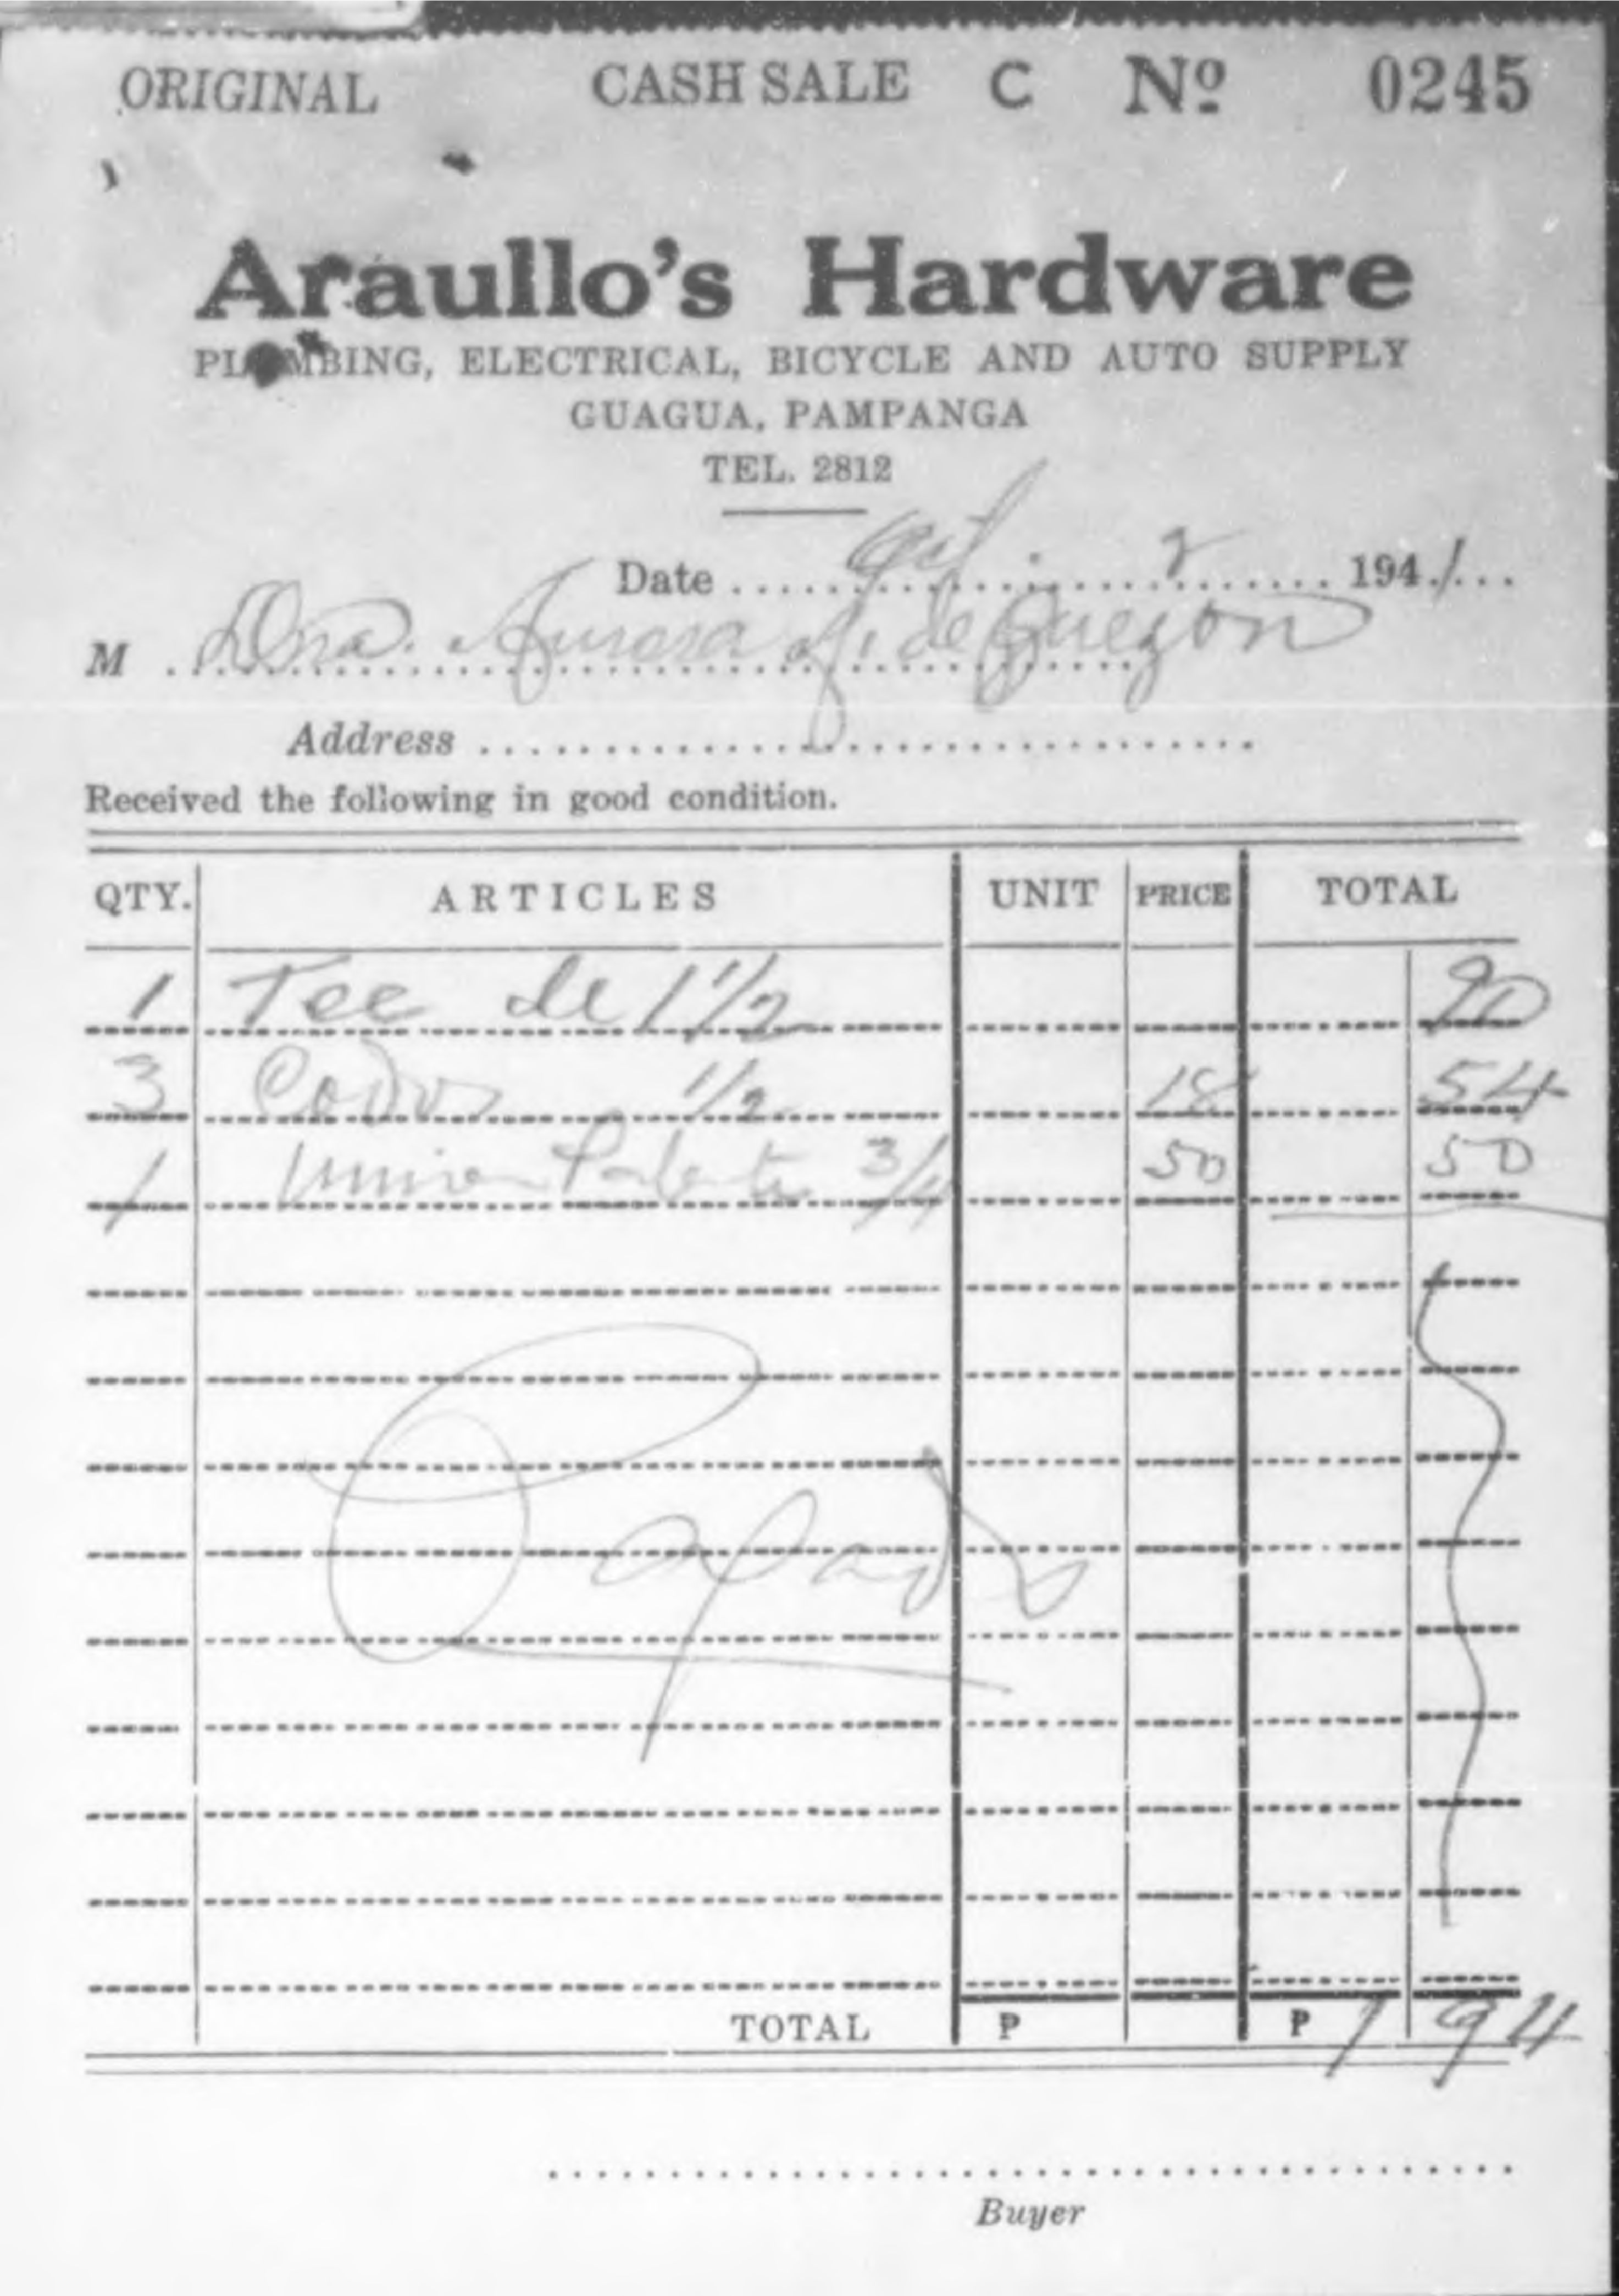 ORIGINAL CASH SALE C Nº 0245
Araullo's Hardware
PLUMBING, ELECTRICAL, BICYCLE AND AUTO SUPPLY
GUAGUA, PAMPANGA
TEL. 2812
Date ..... 2 ..... 194.1...
M Dna. Aurora A. de Quezon
Address
Received the following in good condition.
QTY. ARTICLES UNIT PRICE TOTAL
1 Tee de 1 1/2 90
3 Codos 1/2 18 54
1 Union Patente 3/4 50 50
Pagado
TOTAL ₱ ₱ 1 94
Buyer